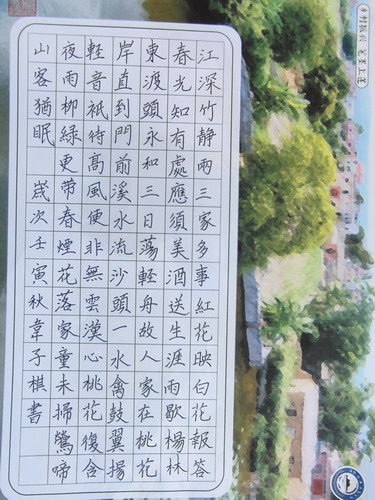 乡村振兴
江深竹静兩三家多事紅花映白花報答
春光知有處應須美酒送生涯雨歇楊林
東渡頭永和三日蕩輕舟故人家在桃花
岸直到門前溪水流沙頭一水禽鼓翼揚
輕音衹待高風便非無雲漢心桃花復含
夜雨柳綠更帶春煙花落家童未掃鶯啼
山客猶眠 歲次壬寅秋韋子棋書